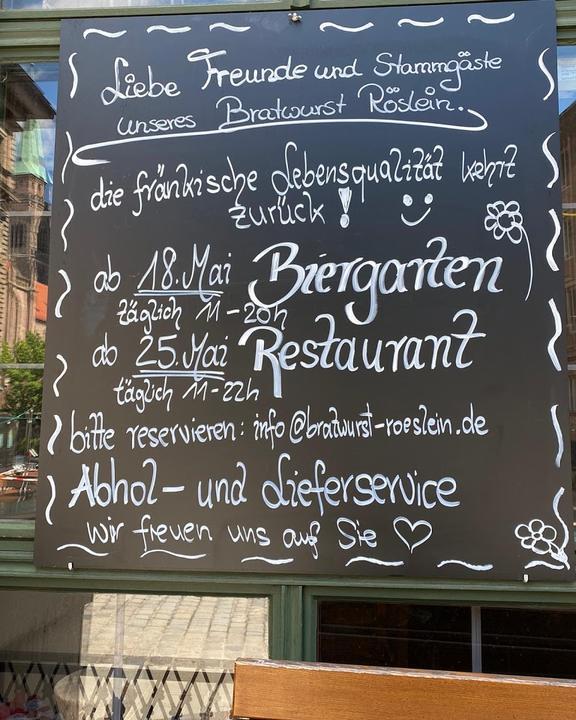 Liebe Freunde und Stammgäste
unseres Bratwurst Röslein.
die fränkische Lebensqualität kehrt
zurück!
ab 18. Mai Biergarten
täglich 11-20h
ab 25. Mai Restaurant
täglich 11-22h
bitte reservieren: info@bratwurst-roeslein.de
Abhol- und Lieferservice
Wir freuen uns auf Sie